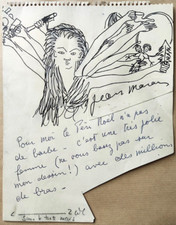 Jean Marais
"Pour moi le Père Noël n'a pas
de barbe - C'est une très jolie
femme (ne vous basez pas sur
mon dessin!) avec des millions
de bras -